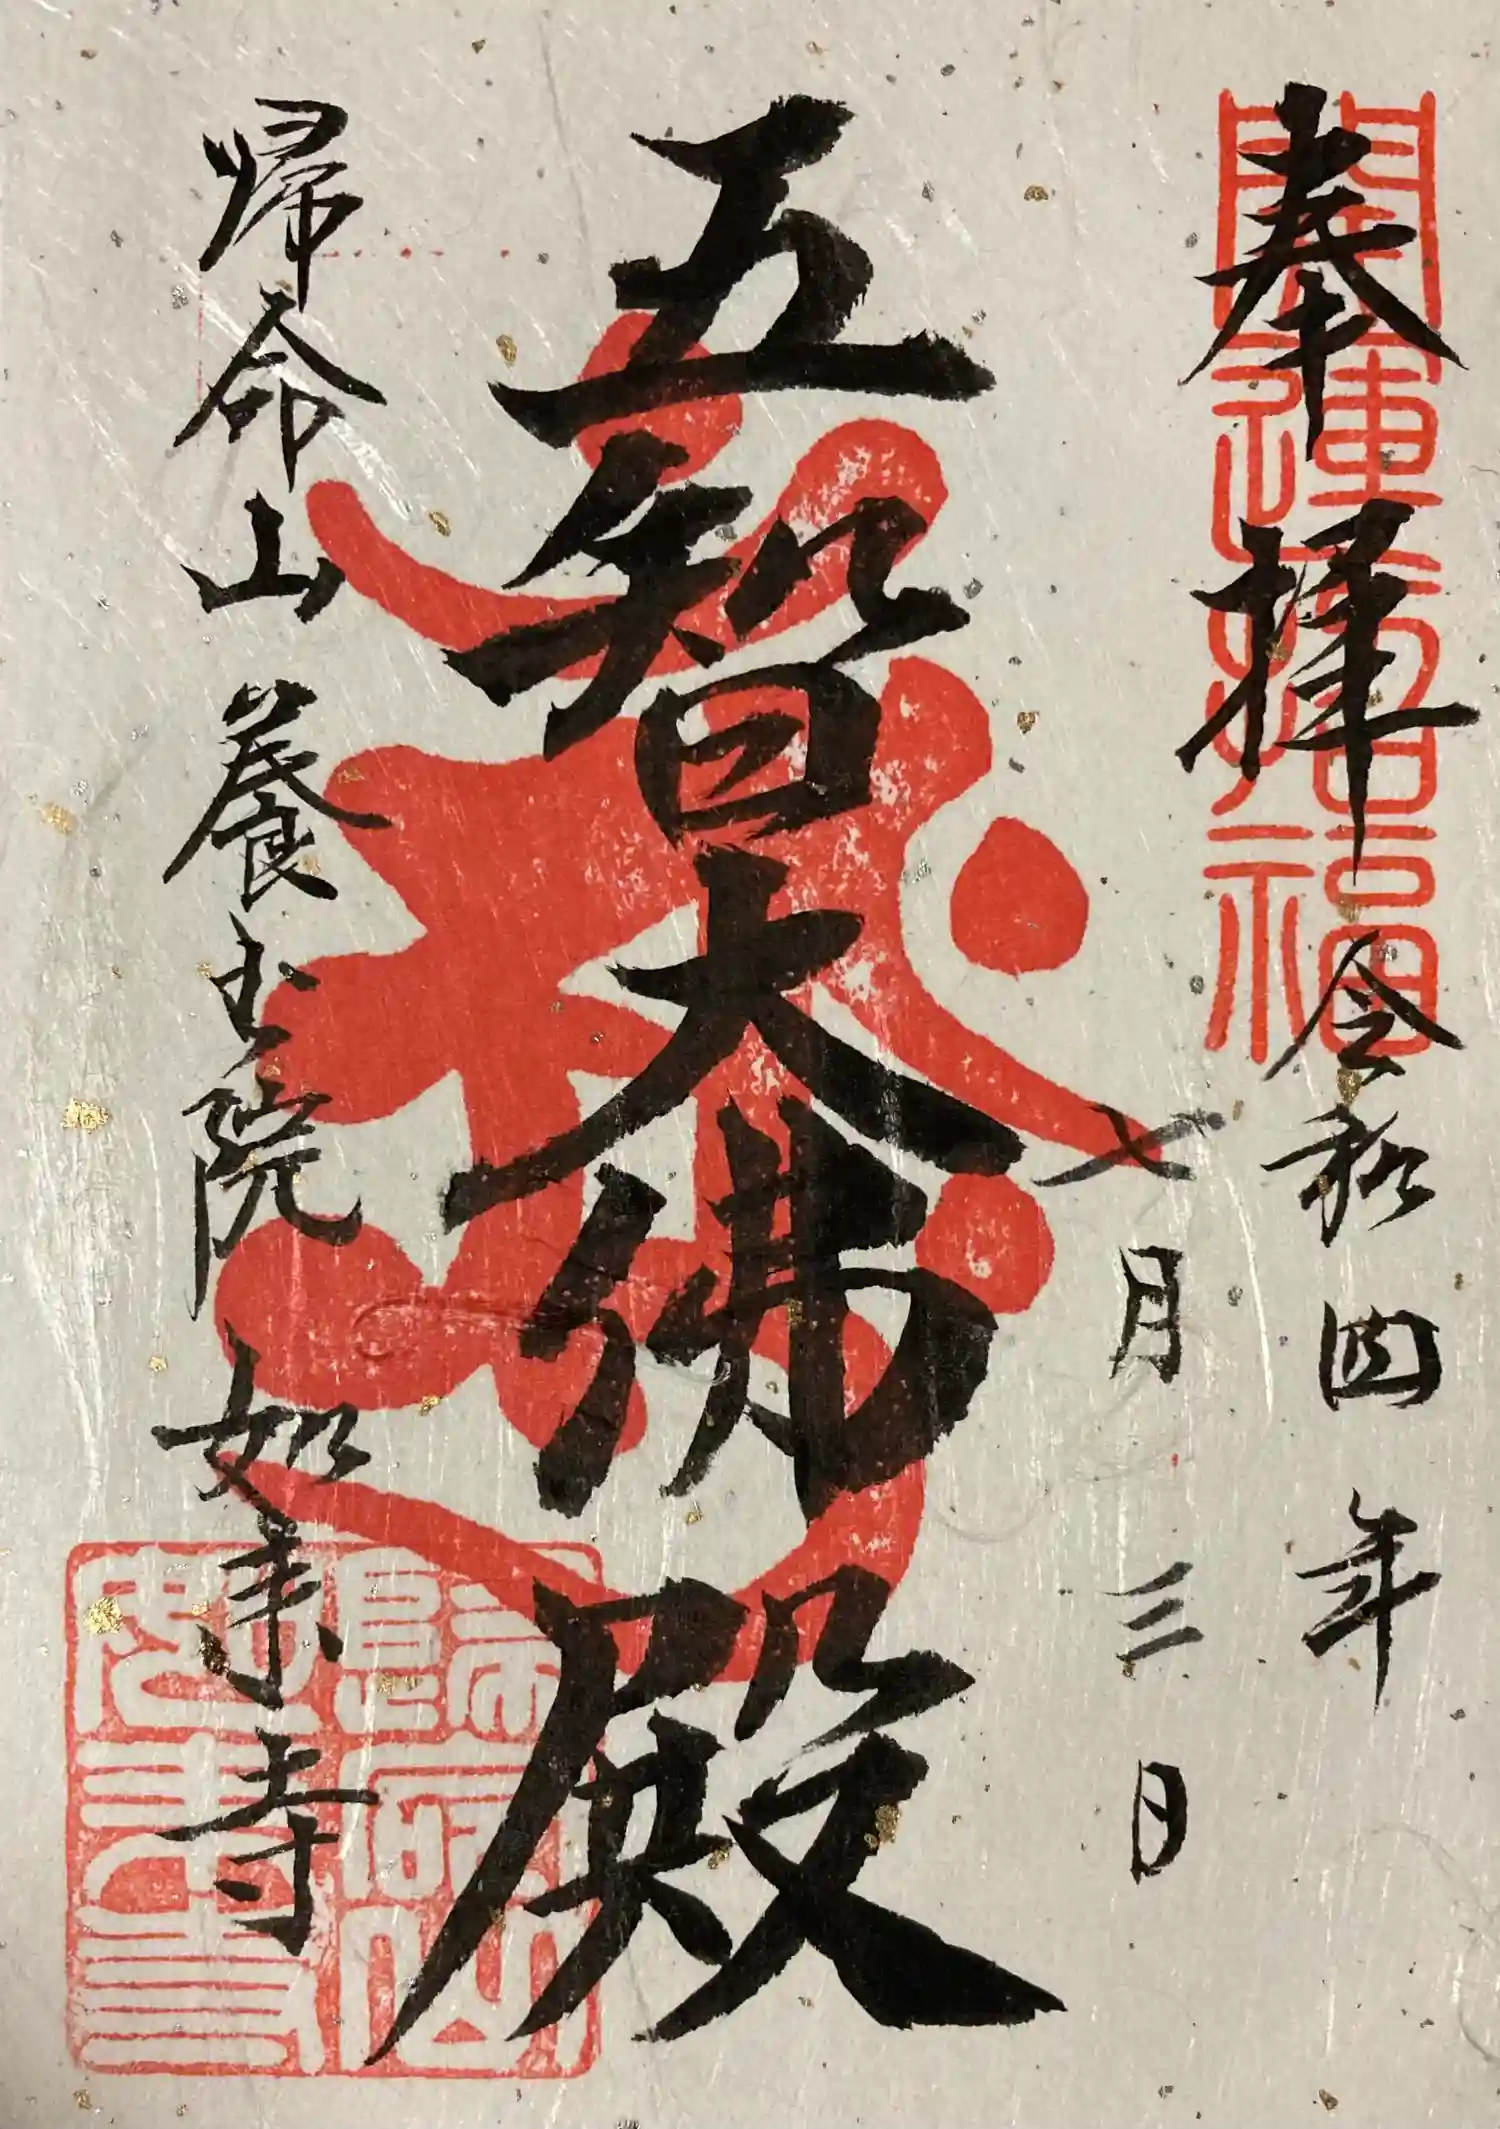 奉拝
開運招福
令和四年
七月三日
五智大佛殿
帰命山養玉院如来寺